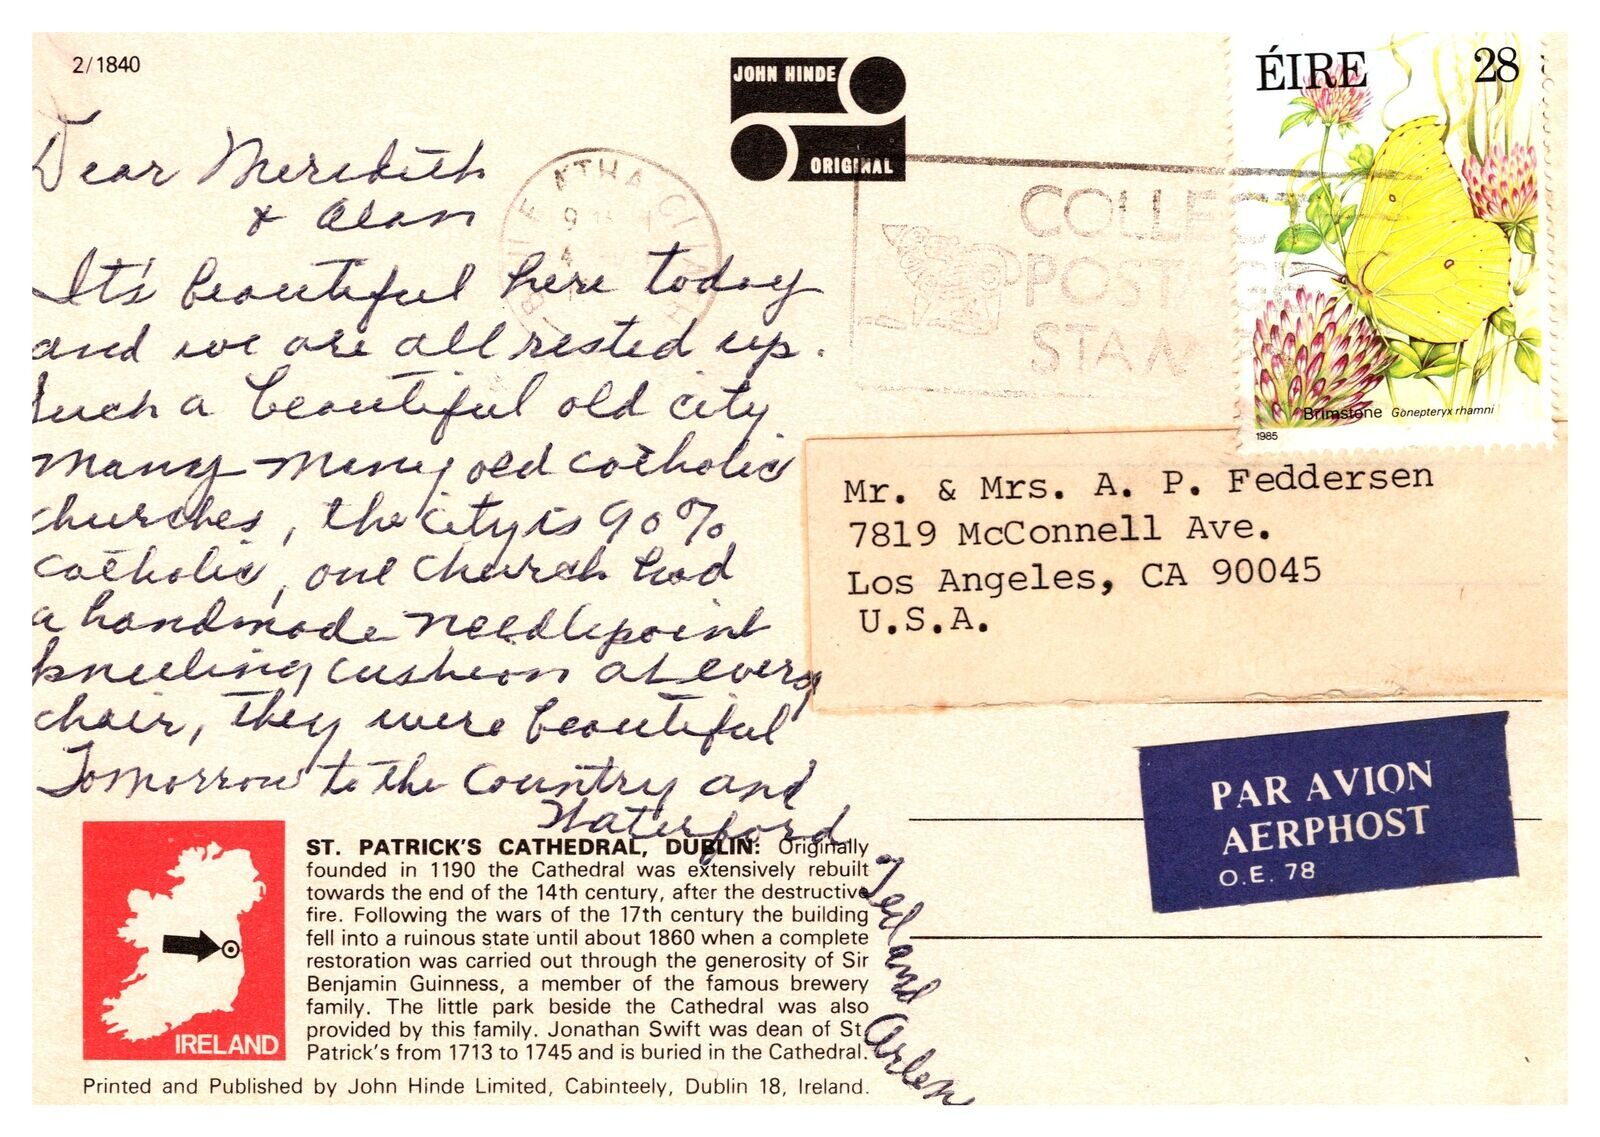 2/1840
JOHN HINDE
ORIGINAL
ÉIRE 28
Brimstone Gonepteryx rhamni
1985
COLLECT
POSTAGE
STAM
ÁTHA CLIATH
Dear Meredith
& Alan
It's beautiful here today
and we are all rested up.
Such a beautiful old city
many many old catholic
churches, the city is 90%
catholic, one church had
a handmade needlepoint
kneeling cushion at every
chair, they were beautiful
Tomorrow to the country and
Waterford
Ted and Arlen
Mr. & Mrs. A. P. Feddersen
7819 McConnell Ave.
Los Angeles, CA 90045
U.S.A.
PAR AVION
AERPHOST
O.E. 78
IRELAND
ST. PATRICK'S CATHEDRAL, DUBLIN: Originally
founded in 1190 the Cathedral was extensively rebuilt
towards the end of the 14th century, after the destructive
fire. Following the wars of the 17th century the building
fell into a ruinous state until about 1860 when a complete
restoration was carried out through the generosity of Sir
Benjamin Guinness, a member of the famous brewery
family. The little park beside the Cathedral was also
provided by this family. Jonathan Swift was dean of St.
Patrick's from 1713 to 1745 and is buried in the Cathedral.
Printed and Published by John Hinde Limited, Cabinteely, Dublin 18, Ireland.